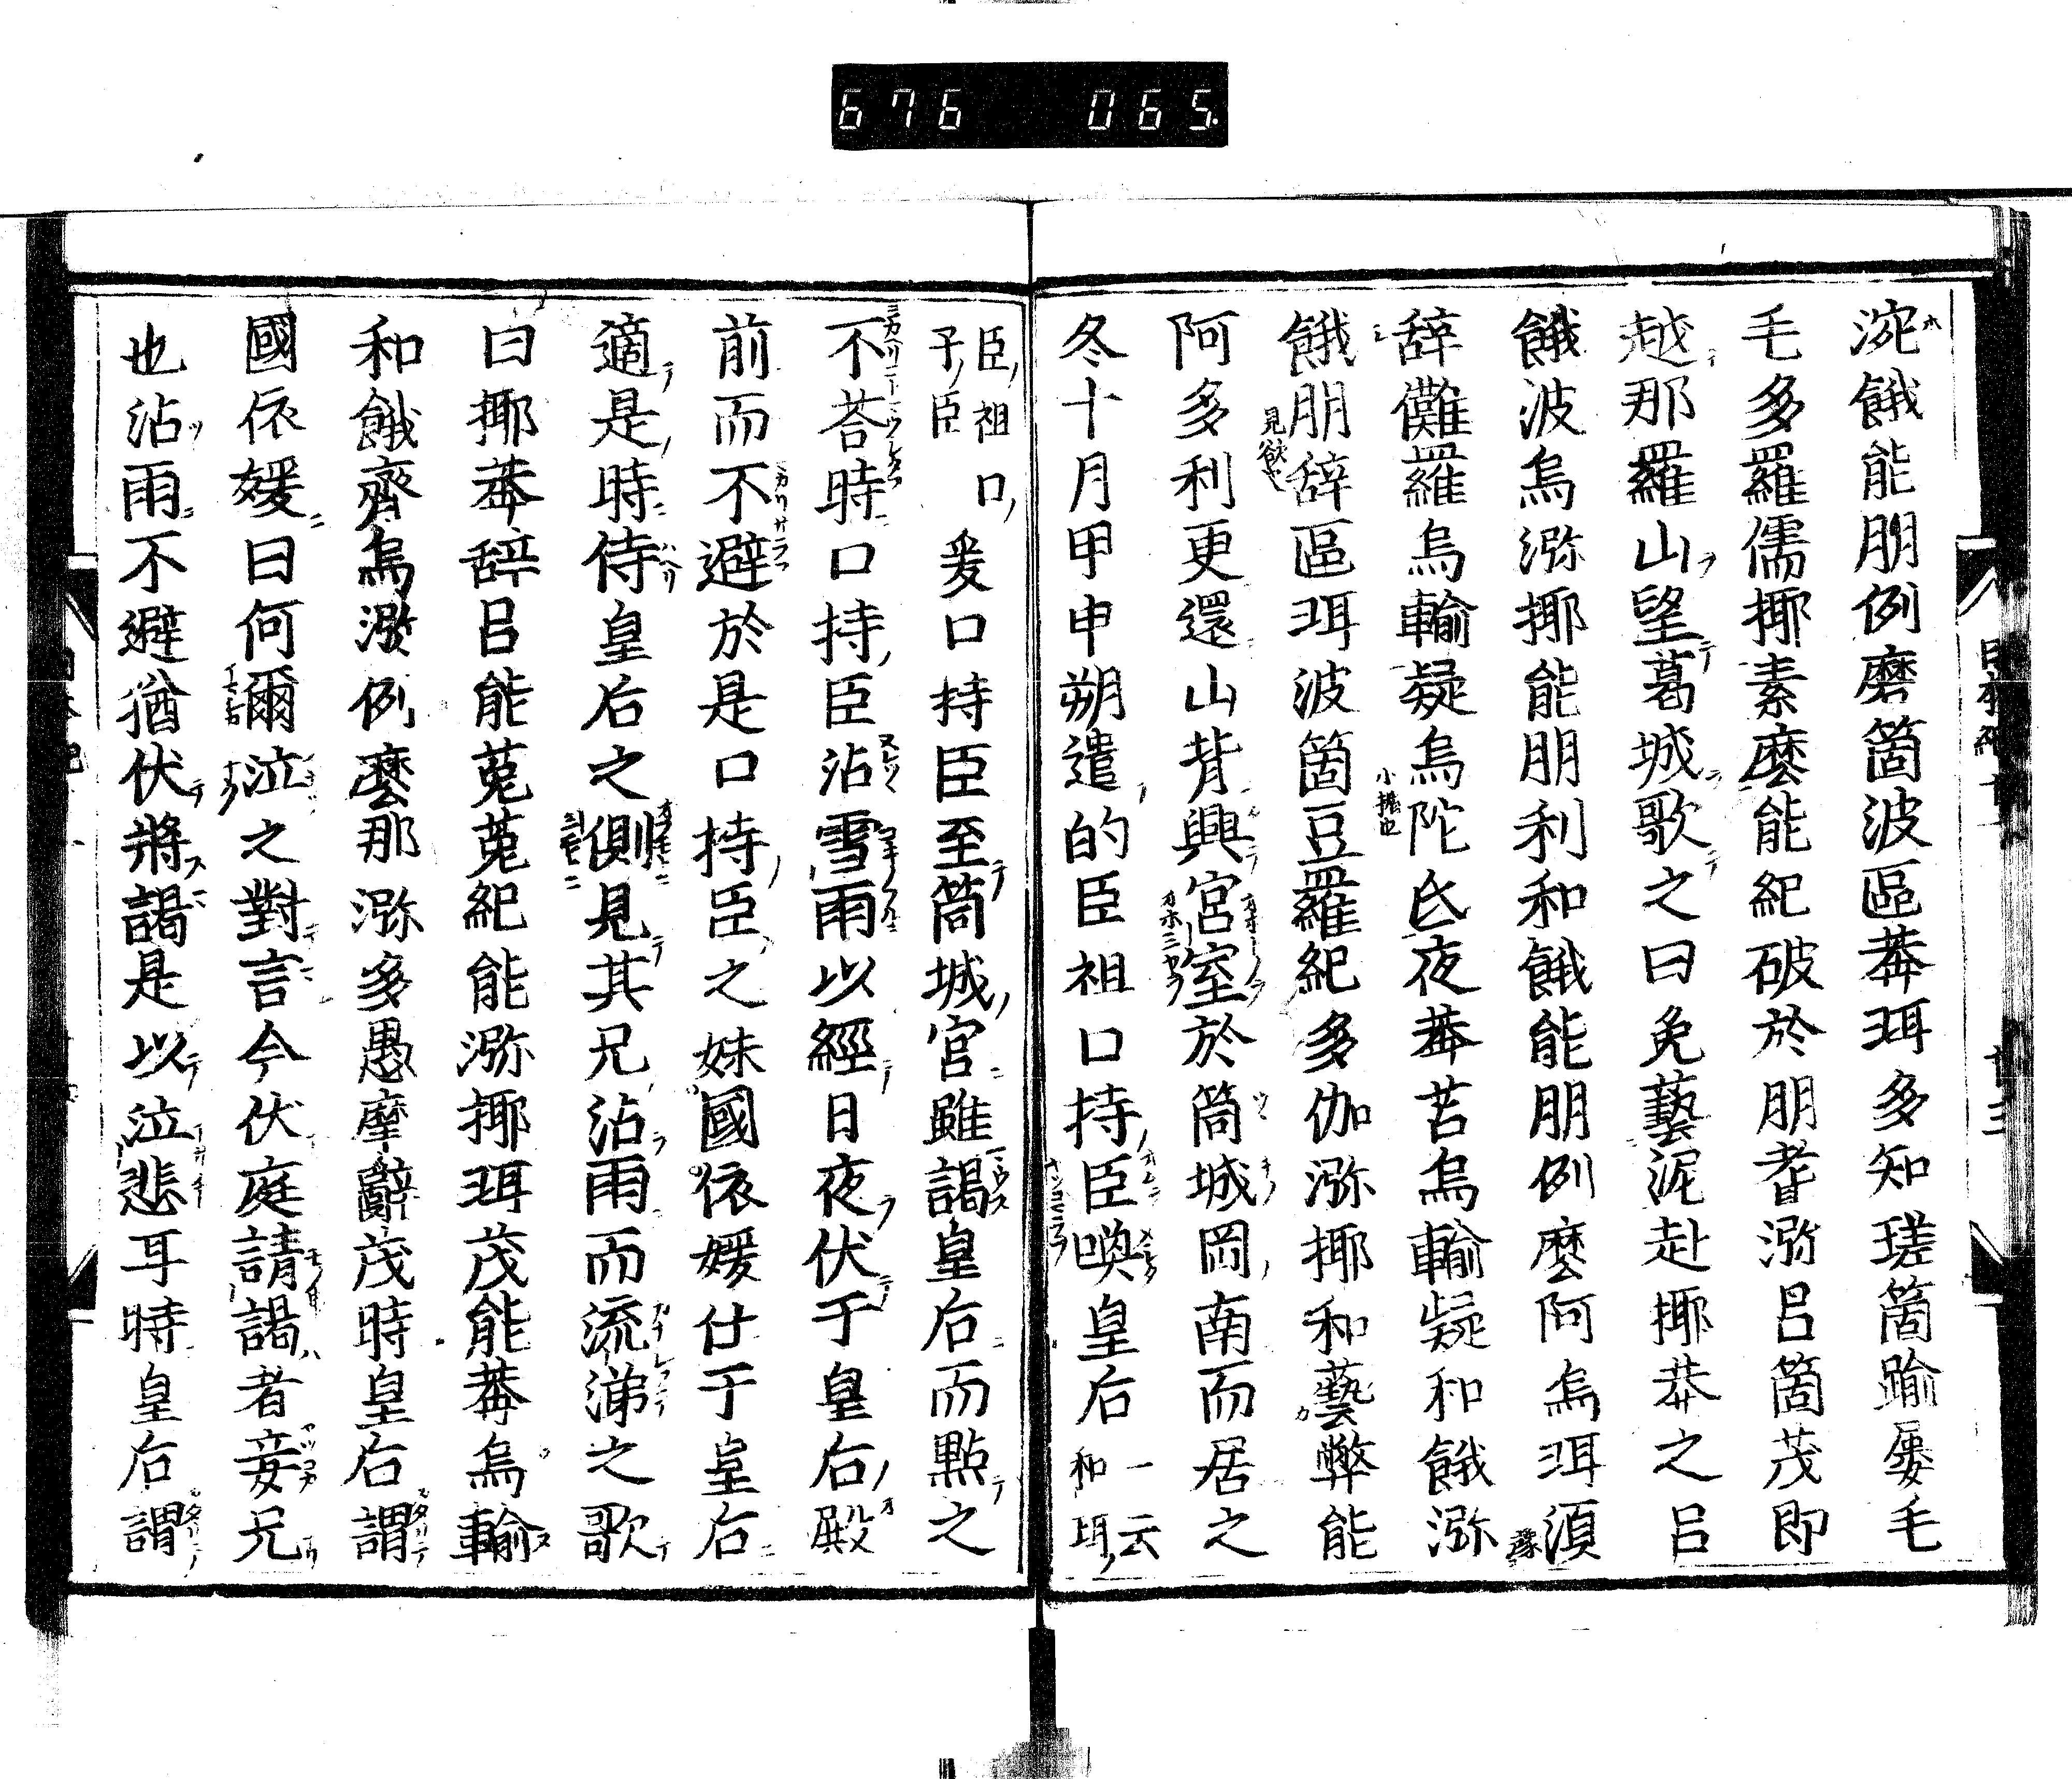 676 065
涴餓能朋例磨箇波區莽珥多知瑳箇踰屢毛
毛多羅儒揶素麼能紀破於朋耆瀰呂箇茂即
越那羅山望葛城歌之曰兔藝泥赴揶莽之呂
餓波烏瀰揶能朋利和餓能朋例麼阿烏珥湏
辞儺羅烏輸疑烏陀氐夜莽苫烏輸疑和餓瀰
餓朋辞區珥波箇豆羅紀多伽瀰揶和藝弊能
阿多利更還山背興宮室於筒城岡南而居之
冬十月甲申朔遣的臣祖口持臣喚皇后一云和珥
臣祖口子臣爰口持臣至筒城宮雖謁皇后而點之
不荅時口持臣沾雪雨以經日夜伏于皇后殿
前而不避於是口持臣之妹國依媛仕于皇后
適是時侍皇后之側見其兄沾雨而流涕之歌
曰揶莽辞呂能菟菟紀能瀰揶珥茂能莽烏輸
和餓齊烏瀰例麼那瀰多愚摩辭茂時皇后謂
國依媛曰何爾泣之對言今伏庭請謁者妾兄
也沾雨不避猶伏將謁是以泣悲耳時皇后謂